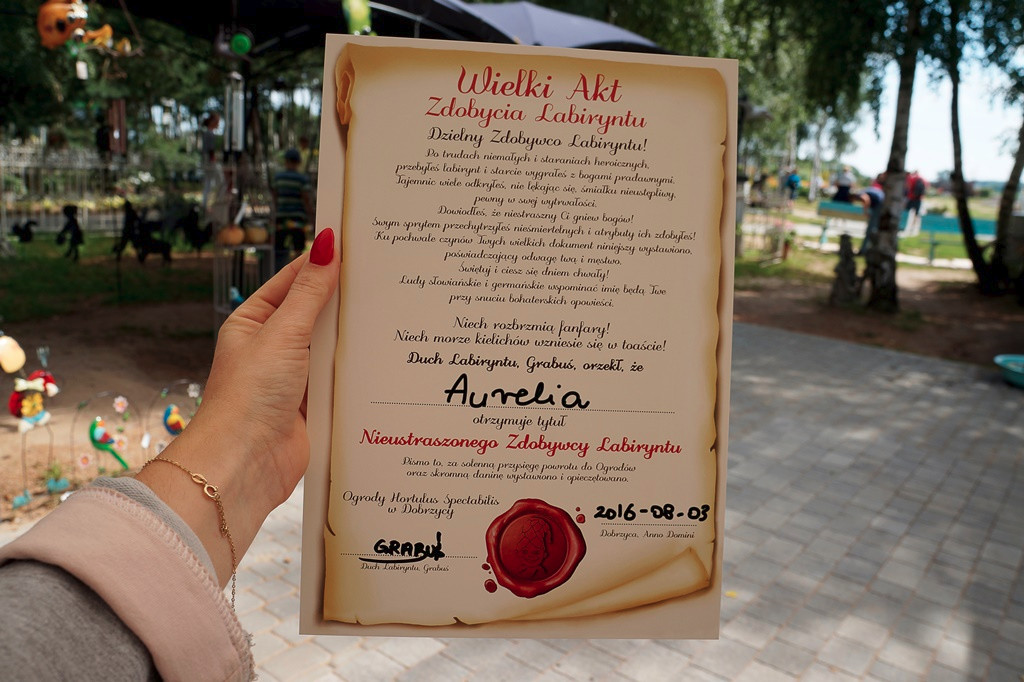 Wielki Akt
Zdobycia Labiryntu
Dzielny Zdobywco Labiryntu!
Po trudach niemałych i staraniach heroicznych,
przebyłeś labirynt i starcie wygrałeś z bogami pradawnymi.
Tajemnic wiele odkryłeś, nie lękając się, śmiałku nieustępliwy,
pewny w swej wytrwałości.
Dowiodłeś, że niestraszny Ci gniew bogów!
Swym sprytem przechytrzyłeś nieśmiertelnych i atrybuty ich zdobyłeś!
Ku pochwale czynów Twych wielkich dokument niniejszy wystawiono,
poświadczający odwagę twą i męstwo.
Świętuj i ciesz się dniem chwały!
Ludy słowiańskie i germańskie wspominać imię będą Twe
przy snuciu bohaterskich opowieści.
Niech rozbrzmią fanfary!
Niech morze kielichów wzniesie się w toaście!
Duch Labiryntu, Grabuś, orzekł, że
Aurelia
otrzymuje tytuł
Nieustraszonego Zdobywcy Labiryntu
Pismo to, za solenną przysięgę powrotu do Ogrodów
oraz skromną daninę wystawiono i opieczętowano.
Ogrody Hortulus Spectabilis
w Dobrzycy
2016-08-03
Dobrzyca, Anno Domini
GRABUŚ
Duch Labiryntu, Grabuś